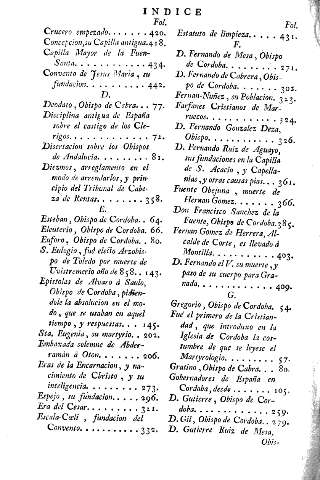 INDICE
Fol.
Crucero empezado. . . . . . . . 420.
Concepcion, su Capilla antigua. 418.
Capilla Mayor de la Fuen-
Santa. . . . . . . . . . . . . . 434.
Convento de Jesus Maria, su
fundacion. . . . . . . . . . . 442.
D.
Deodato, Obispo de Cabra. . . 77.
Disciplina antigua de España
sobre el castigo de los Cle-
rigos. . . . . . . . . . . . . . 72.
Disertacion sobre los Obispos
de Andalucia. . . . . . . . . . 81.
Diezmos, arreglamento en el
modo de arrendarlos, y prin-
cipio del Tribunal de Cabe-
za de Rentas. . . . . . . . . . 358.
E.
Esteban, Obispo de Cordoba. . 64.
Eleuterio, Obispo de Cordoba. 66.
Euforo, Obispo de Cordoba. . 80.
S. Eulogio, fué electo Arzobis-
po de Toledo por muerte de
Uvistremerio año de 858. . . 143.
Epistolas de Alvaro á Saulo,
Obispo de Cordoba, pidien-
dole la absolucion en el mo-
do, que se usaban en aquel
tiempo, y respuestas. . . . 145.
Sta. Eugenia, su martyrio. . 202.
Embaxada solemne de Abder-
ramán á Oton. . . . . . . . . 206.
Eras de la Encarnacion, y na-
cimiento de Christo, y su
inteligencia. . . . . . . . . . 273.
Espejo, su fundacion. . . . . 296.
Era del Cesar. . . . . . . . . 321.
Escala-Cœli, fundacion del
Convento. . . . . . . . . . . 332.
Fol.
Estatuto de limpieza. . . . . 431.
F.
D. Fernando de Mesa, Obispo
de Cordoba. . . . . . . . . . 271.
D. Fernando de Cabrera, Obis-
po de Cordoba. . . . . . . . 302.
Fernan-Nuñez, su Poblacion. 323.
Farfanes Cristianos de Mar-
ruecos. . . . . . . . . . . . 324.
D. Fernando Gonzalez Deza,
Obispo. . . . . . . . . . . . 326.
D. Fernando Ruiz de Aguayo,
sus fundaciones en la Capilla
de S. Acacio, y Capella-
nías, y otras causas pias. . . 361.
Fuente Obejuna, muerte de
Hernan Gomez. . . . . . . . 366.
Don Francisco Sanchez de la
Fuente, Obispo de Cordoba. 385.
Fernan Gomez de Herrera, Al-
calde de Corte, es llevado á
Montilla. . . . . . . . . . . 403.
D. Fernando el V. su muerte, y
paso de su cuerpo para Gra-
nada. . . . . . . . . . . . . 409.
G.
Gregorio, Obispo de Cordoba. 54.
Fué el primero de la Cristian-
dad, que introduxo en la
Iglesia de Cordoba la cos-
tumbre de que se leyese el
Martyrologio. . . . . . . . . 57.
Gratino, Obispo de Cabra. . . 80.
Gobernadores de España en
Cordoba, desde . . . . . . . 105.
D. Gutierre, Obispo de Cor-
doba. . . . . . . . . . . . . 259.
D. Gil, Obispo de Cordoba. . 279.
D. Gutierre Ruiz de Mesa,
Obis-